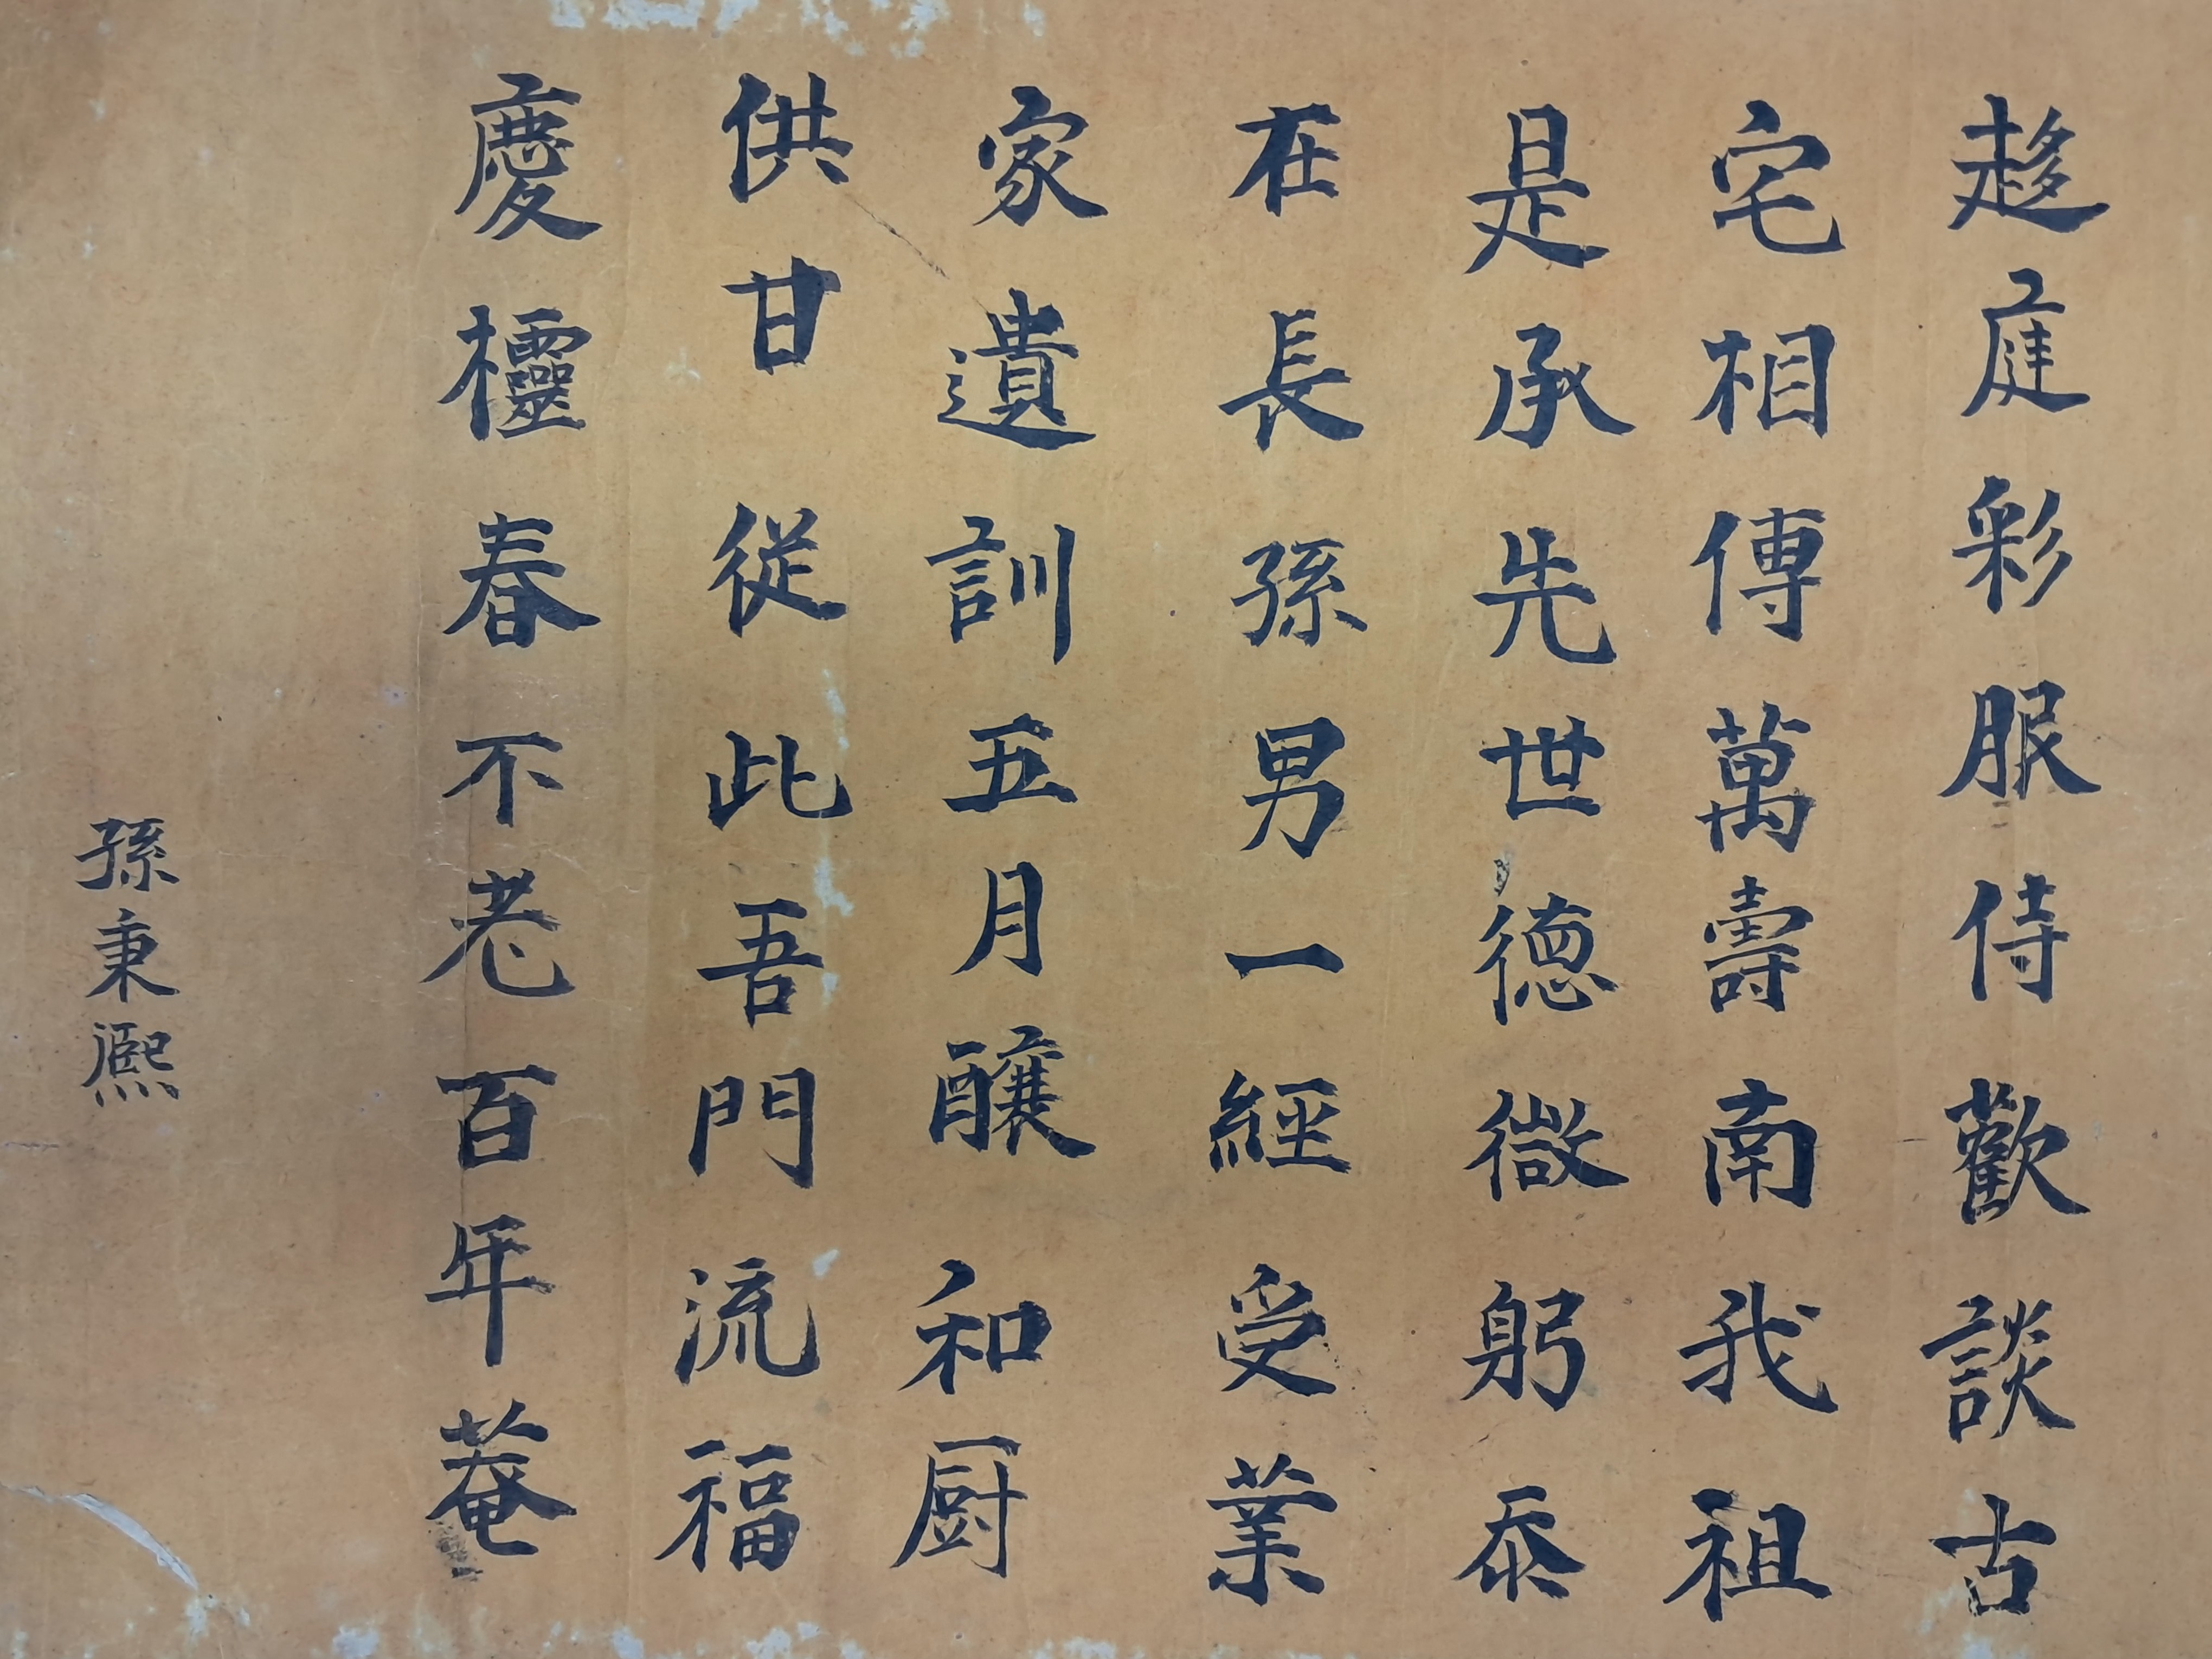 趍庭彩服侍歡談古
宅相傳萬壽南我祖
是承先世德微躬忝
在長孫男一經受業
家遺訓五月醸和厨
供甘從此吾門流福
慶櫺春不老百年菴
孫秉熈